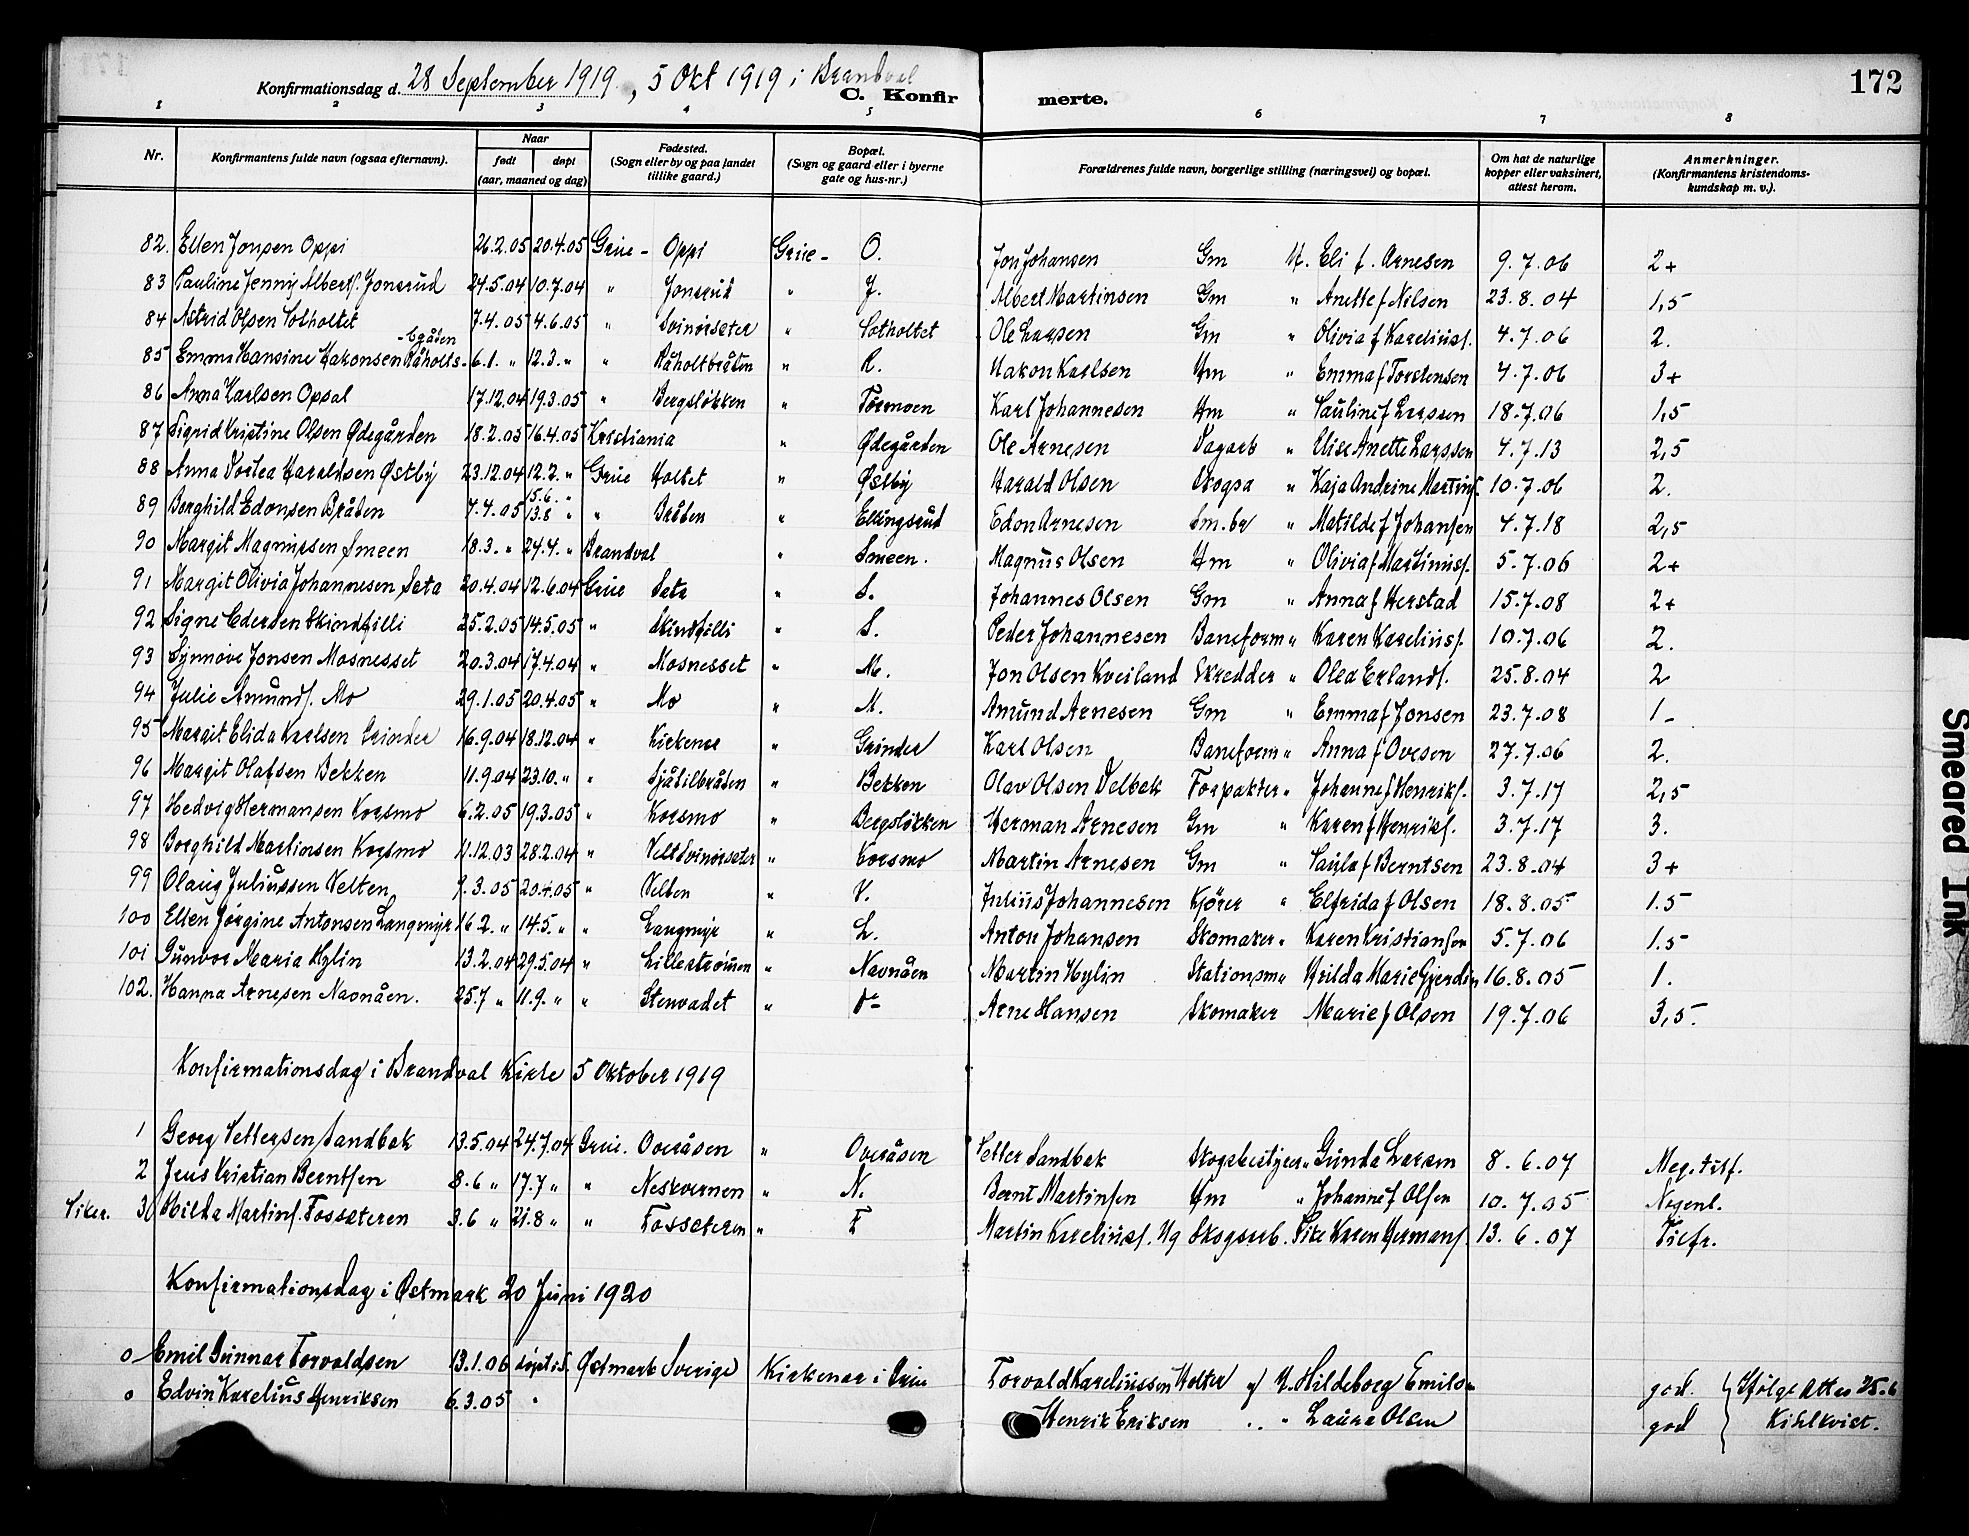 Konfirmationsdag d. 28 September 1919, 5 Okt 1919 i Brandval
C. Konfirmerte.
172
1 2 3 4 5 6 7 8
Nr. Konfirmantens fulde navn (ogsaa efternavn). Naar født døpt (aar, maaned og dag) Fødested. (Sogn eller by og paa landet tillike gaard.) Bopæl. (Sogn og gaard eller i byerne gate og hus-nr.) Forældrenes fulde navn, borgerlige stilling (næringsvei) og bopæl. Om hat de naturlige kopper eller vaksinert, attest herom. Anmerkninger. (Konfirmantens kristendomskundskap m. v.).
82. Ellen Jonsen Oppi 26.2.05 20.4.05 Grue - Oppi Grue - O. Jon Johansen Gm H. Eli f. Arnesen 9.7.06 2+
83 Pauline Jenny Alberts. Jonsrud 24.5.04 10.7.04 " Jonsrud " J. Albert Martinsen Gm " Anette f Nilsen 23.8.04 1,5
84 Astrid Olsen Sotholtet 7.4.05 4.6.05 " Svinörseter " Sotholtet Ole Larsen Gm " Olivia f Karelius. 4.7.06 2.
85 Emma Hansine Hakonsen Råholts-bråden 6.1. " 12.3. " " Råholtbråten " R. Hakon Karlsen Hm " Emma f Torstensen 4.7.06 3+
86 Anna Karlsen Opsal 17.12.04 19.3.05 " Bergsløkken " Tørmoen Karl Johannesen Hm " Pauline f Larssen 18.7.06 1,5
87 Sigrid Kristine Olsen Ødegården 18.2.05 16.4.05 Kristiania " Ødegården Ole Arnesen Dagarb " Elise Anette Larssen 4.7.13 2,5
88 Anna Dortea Haraldsen Østby 23.12.04 12.2. " Grue Holtet " Østby Harald Olsen Skogsa " Kaja Andrine Martins. 10.7.06 2.
89 Borghild Edonsen Bråten 7.4.05 15.6. " 13.8 " " Bråten " Ellingsrud Edon Arnesen Sm.br " Matilde f Johansen 4.7.18 2,5
90 Margit Magnussen Smeen 18.3. " 24.4. " Brandval " Smeen. Magnus Olsen Hm " Olivia f Martinus. 5.7.06 2+
91 Margit Olivia Johannesen Seta 20.4.04 12.6.04 Grue Seta " S. Johannes Olsen Gm " Anna f Herstad 15.7.08 2+
92 Signe Pedersen Skindfilli 25.2.05 14.5.05 " Skindfilli " S. Peder Johannesen Baneform " Karen Karelius. 10.7.06 2.
93 Synnøve Jonsen Mosnesset 20.3.04 17.4.04 " Mosnesset " M. Jon Olsen Kveiland Skredder " Olea Erlands. 25.8.04 2
94 Julie Amunds. Mo 29.1.05 20.4.05 " Mo " M. Amund Arnesen Gm " Emma f Jonsen 23.7.08 1-
95 Margit Elida Karlsen Grinder 16.9.04 18.12.04 " Kirkener " Grinder Karl Olsen Baneform " Anna f Ovesen 27.7.06 2.
96 Margit Olafsen Bekken 11.9.04 23.10. " " Sjåtilbråten " Bekken Olav Olsen Velbak Forpakter " Johanne f Henriks. 3.7.17 2,5
97 Hedvig Hermansen Korsmo 6.2.05 19.3.05 " Korsmo " Bergsløkken Herman Arnesen Gm " Karen f Henriks. 3.7.17 3.
98 Borghild Martinsen Korsmo 11.12.03 28.2.04 " Velt Svinörseter " Korsmo Martin Arnesen Gm " Paula f Berntsen 23.8.04 3+
99 Olaug Juliussen Velten 9.3.05 20.4.05 " Velten " V. Julius Johannesen Kjører " Elfrida f Olsen 18.8.05 1.5
100 Ellen Jørgine Antonsen Langmyr 16.2. " 14.5. " " Langmyr " L. Anton Johansen Skomaker " Karen Kristiansen 5.7.06 1.5
101 Gunvor Maria Hylin 13.2.04 29.5.04 " Lillestrømmen " Navnåen Martin Hylin Stationsm " Hilda Marie Gjerdin 16.8.05 1.
102. Hanna Arnesen Navnåen. 25.7 " 11.9. " " Stenvadet " Arne Hansen Skomaker Marie f Olsen 19.7.06 3,5.
Konfirmationsdag i Brandval Kirke 5 Oktober 1919
1 Georg Pettersen Sandbak 13.5.04 24.7.04 Grue. Overåsen " Overåsen Petter Sandbak Skogsbestyrer " Gunda Larsen 8.6.07 Meg. tilf.
2 Jens Kristian Berntsen 8.6 " 17.7 " " Neskvernen " N. Bernt Martinsen Hm " Johanne f Olsen 10.7.05 Nogenl.
Piker. 3 Hilda Martins. Fosseteren 3.6 " 21.8 " " Fosseteren " F Martin Karelius. Ug Skogsarb. Pike Karen Hermans. 13.6.07 Tilfr.
Konfirmationsdag i Østmark 20 Juni 1920
0 Emil Gunnar Torvaldsen 13.1.06 døpt i S. Østmark Sverige Kirkener i Grue Torvald Kareliussen Holter H. Hildeborg Emils. god. Ifølge Attes 25.6
0 Edvin Karelius Henriksen 6.3.05 " Henrik Eriksen " " Laura Olsen god Kihlkvist.
Smeared Ink